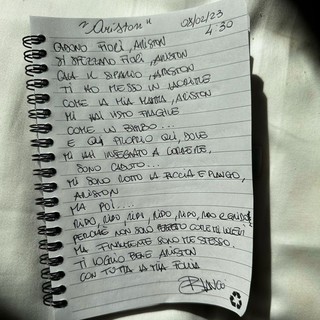 "Ariston"
08/02/23
4:30
CADONO FIORI, ARISTON
SI SPEZZANO FIORI, ARISTON
CALA IL SIPARIO, ARISTON
TI HO MESSO IN LACRIME
COME LA MIA MAMMA, ARISTON
MI HAI VISTO FRAGILE
COME UN BIMBO...
E QUI PROPRIO QUI, DOVE
MI HAI INSEGNATO A CORRERE,
SONO CADUTO...
MI SONO ROTTO LA FACCIA E PIANGO,
ARISTON
MA POI....
RIDO, RIDO, RIDO, RIDO, RIDO, RIDO E GRIDO
PERCHÉ NON SONO COME MI
MA FINALMENTE SONO ME STESSO.
TI VOGLIO BENE ARISTON
CON TUTTA LA MIA FOLLIA
BLANCO